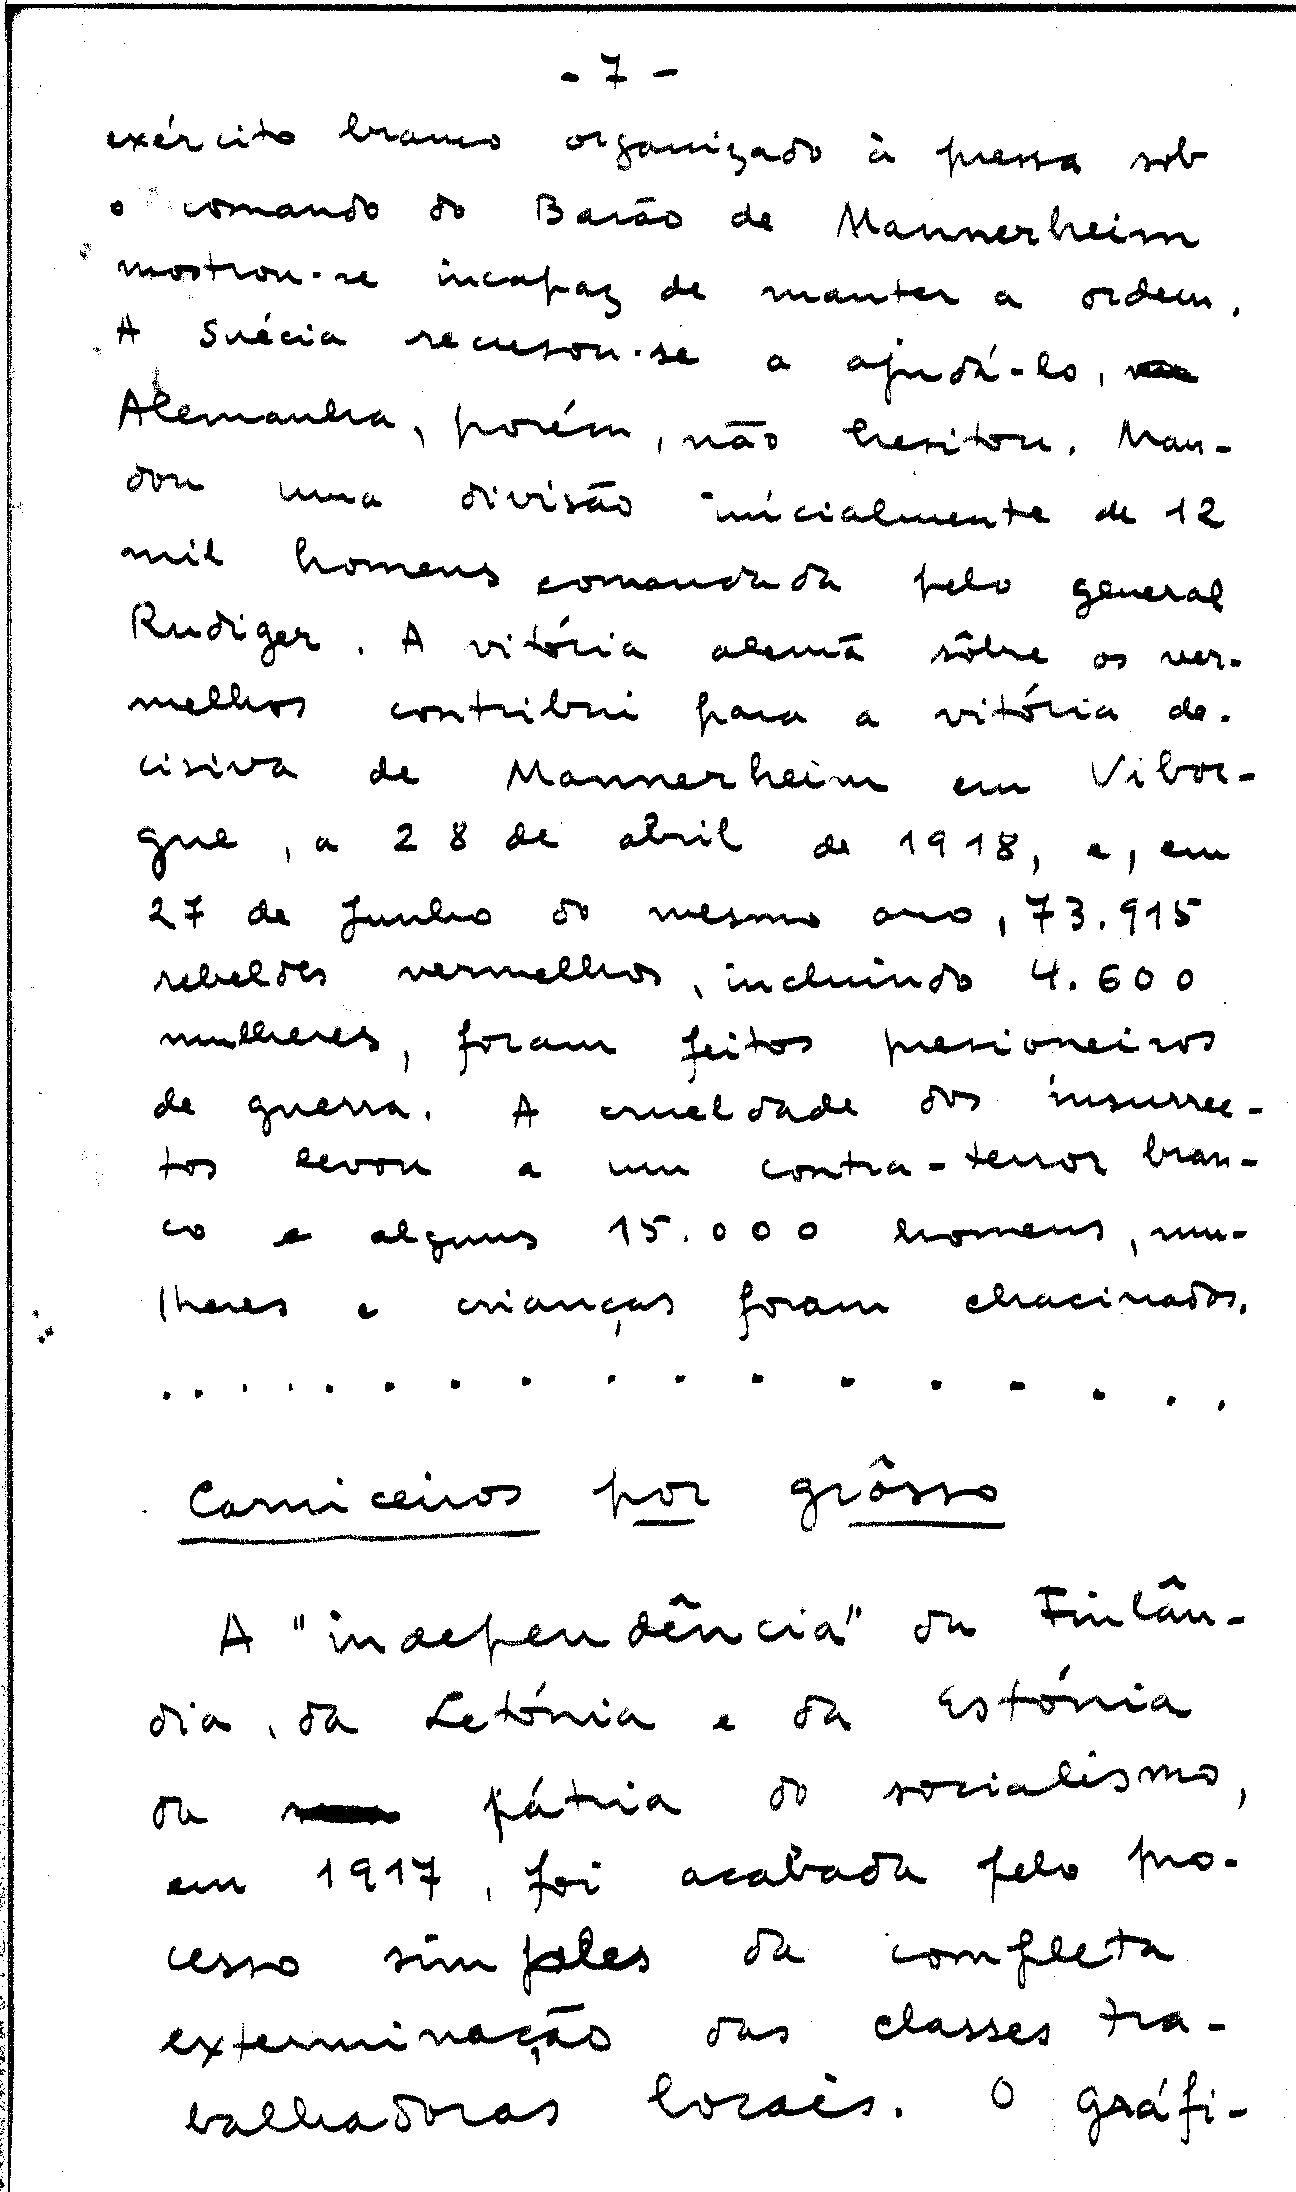 - 7 -
exército branco organizado à pressa sob
o comando do Barão de Mannerheim
mostrou-se incapaz de manter a ordem.
A Suécia recusou-se a ajudá-lo,
Alemanha, porém, não hesitou. Man-
dou uma divisão inicialmente de 12
mil homens comandada pelo general
Rudiger. A vitória alemã sôbre os ver-
melhos contribui para a vitória de-
cisiva de Mannerheim em Vibor-
gue, a 28 de abril de 1918, e, em
27 de Junho do mesmo ano, 73.915
rebeldes vermelhos, incluindo 4.600
mulheres, foram feitos presioneiros
de guerra. A crueldade dos insurrec-
tos levou a um contra-terror bran-
co e alguns 15.000 homens, mu-
lheres e crianças foram chacinados.
. . . . . . . . . . . . . . . . . .
Carniceiros por grôsso
A "independência" da Finlân-
dia, da Letónia e da Estónia
da pátria do socialismo,
em 1917, foi acabada pelo pro-
cesso simples da completa
exterminação das classes tra-
balhadoras locais. O gráfi-